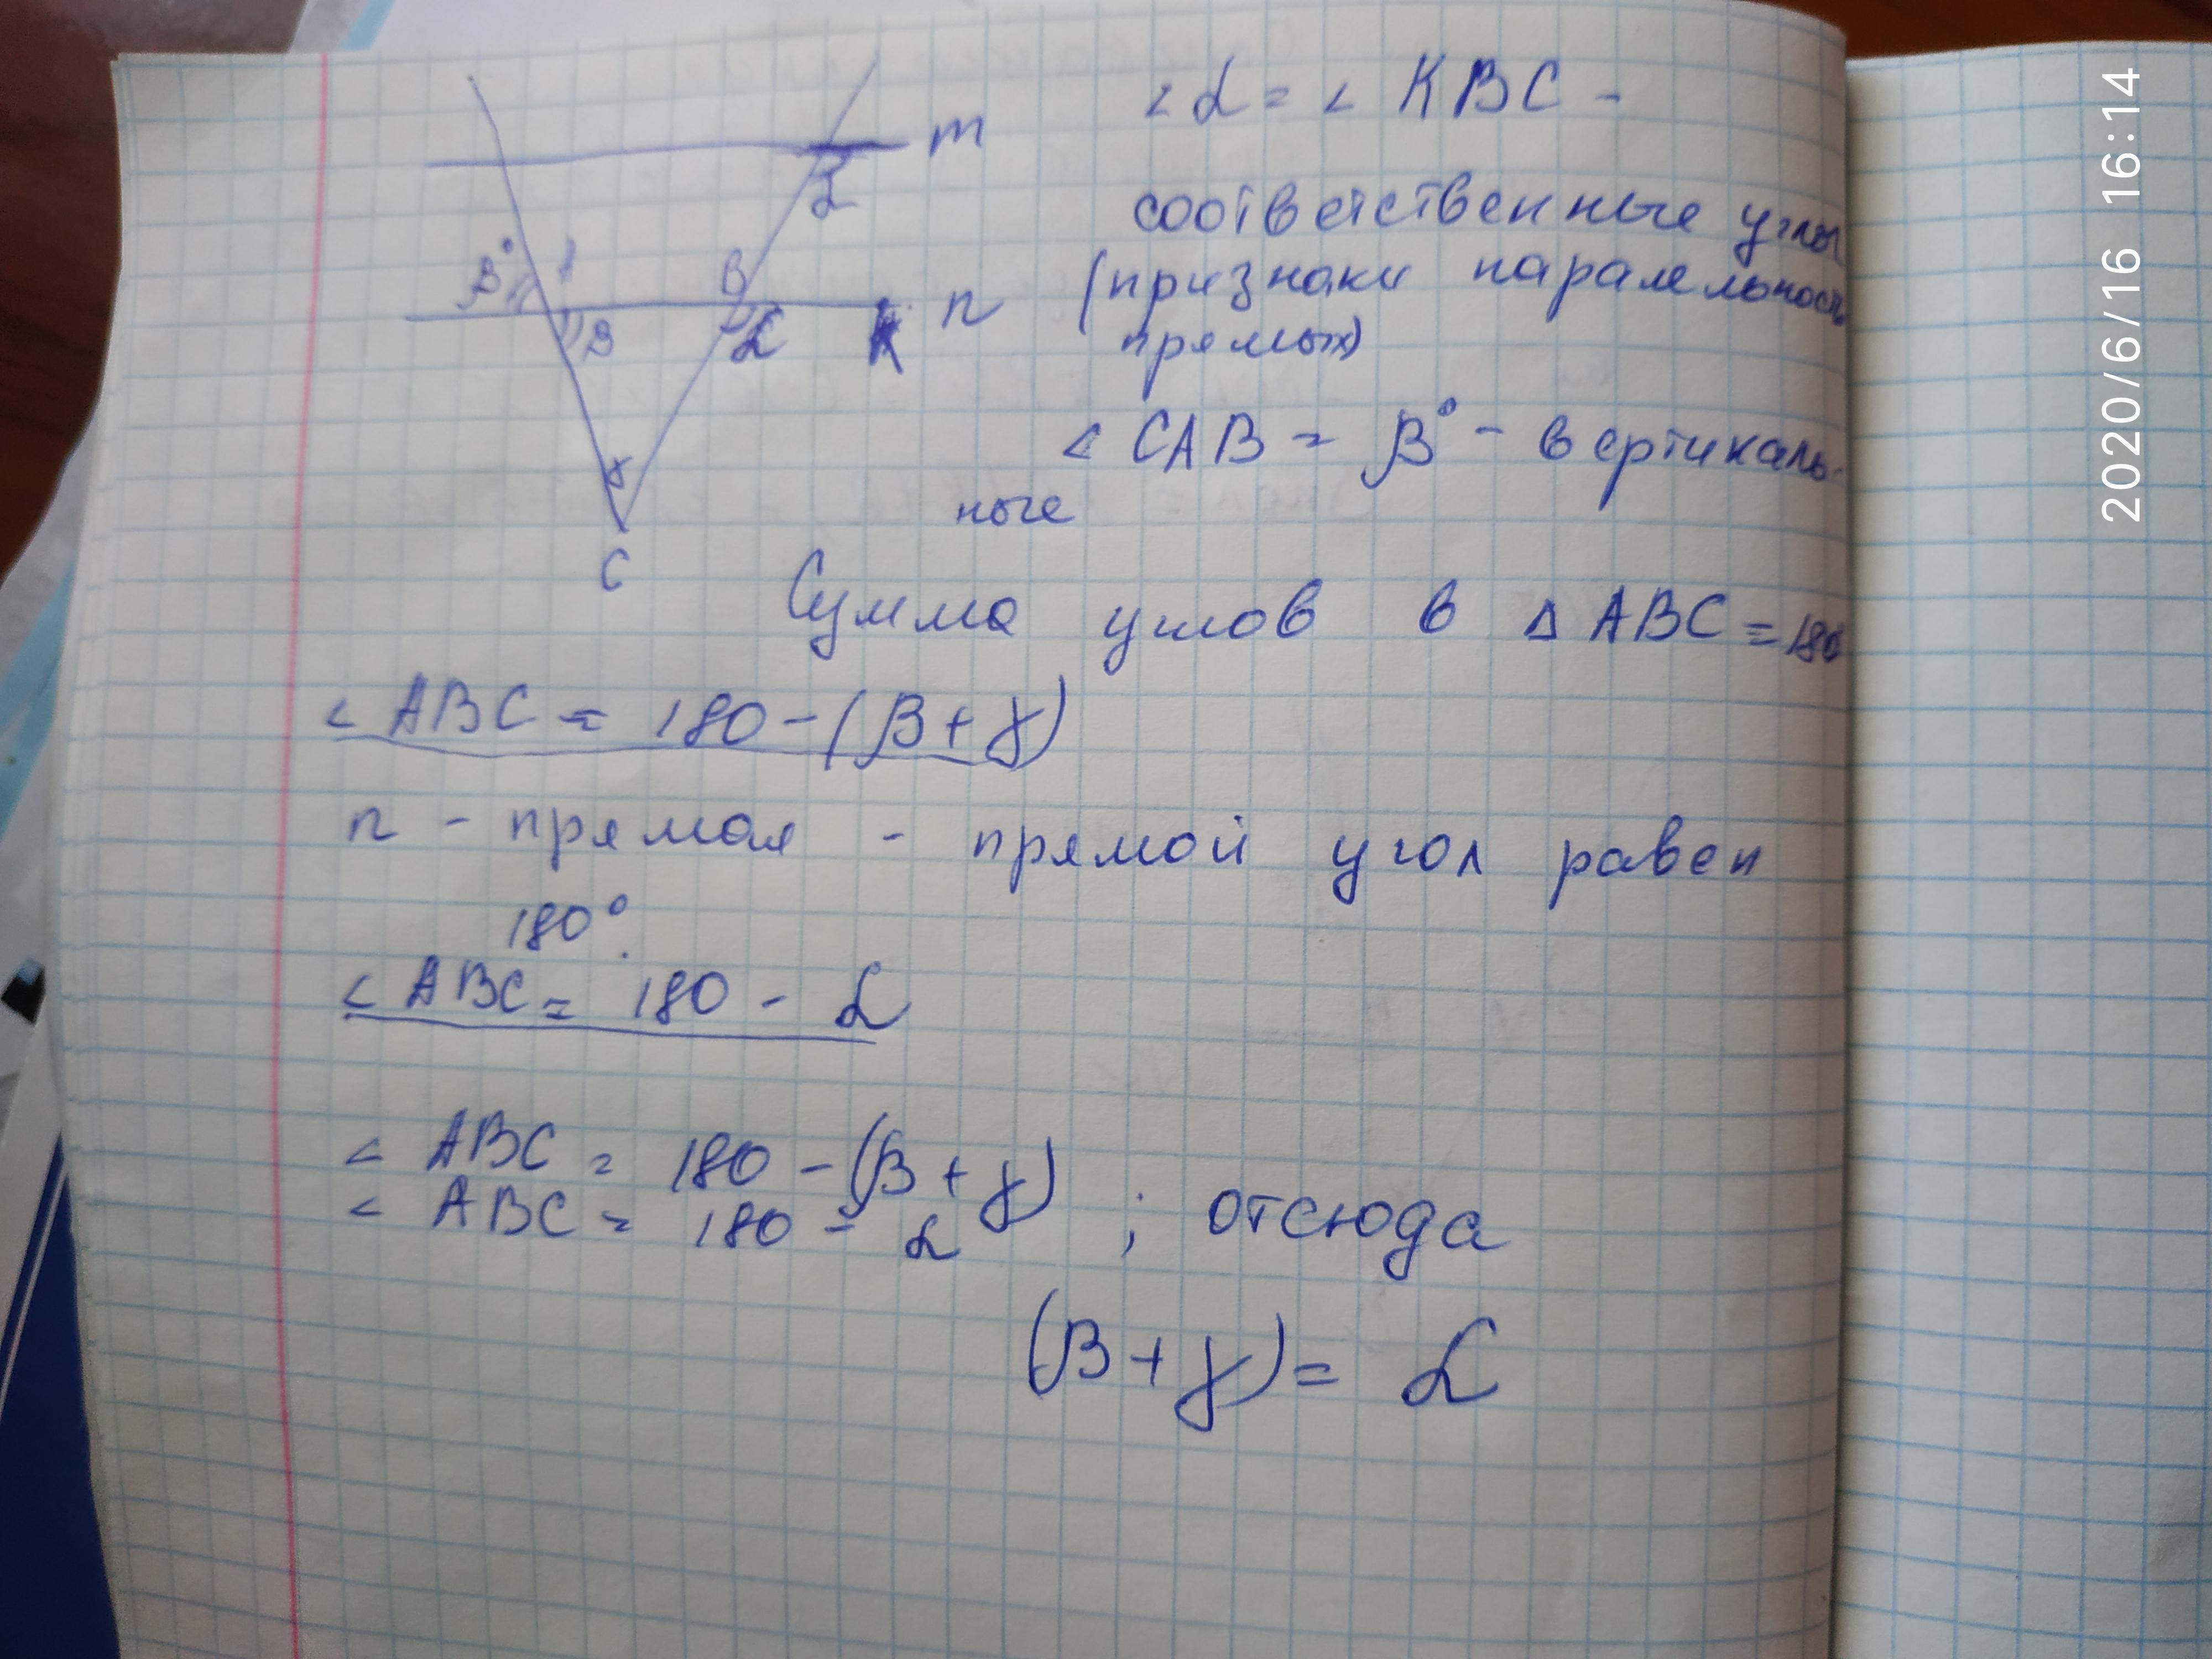 m
∠α = ∠ KBC -
соответственные углы
(признаки паралельность
прямых)
β°
B
n
β
α
α
K
∠ CAB = β° - вертикаль-
ные
γ
C
Сумма углов в Δ ABC = 180
∠ ABC = 180 - (β + γ)
n - прямая - прямой угол равен
180°.
∠ ABC = 180 - α
∠ ABC = 180 - (β + γ)
∠ ABC = 180 - α ; отсюда
(β + γ) = α
2020/6/16 16:14